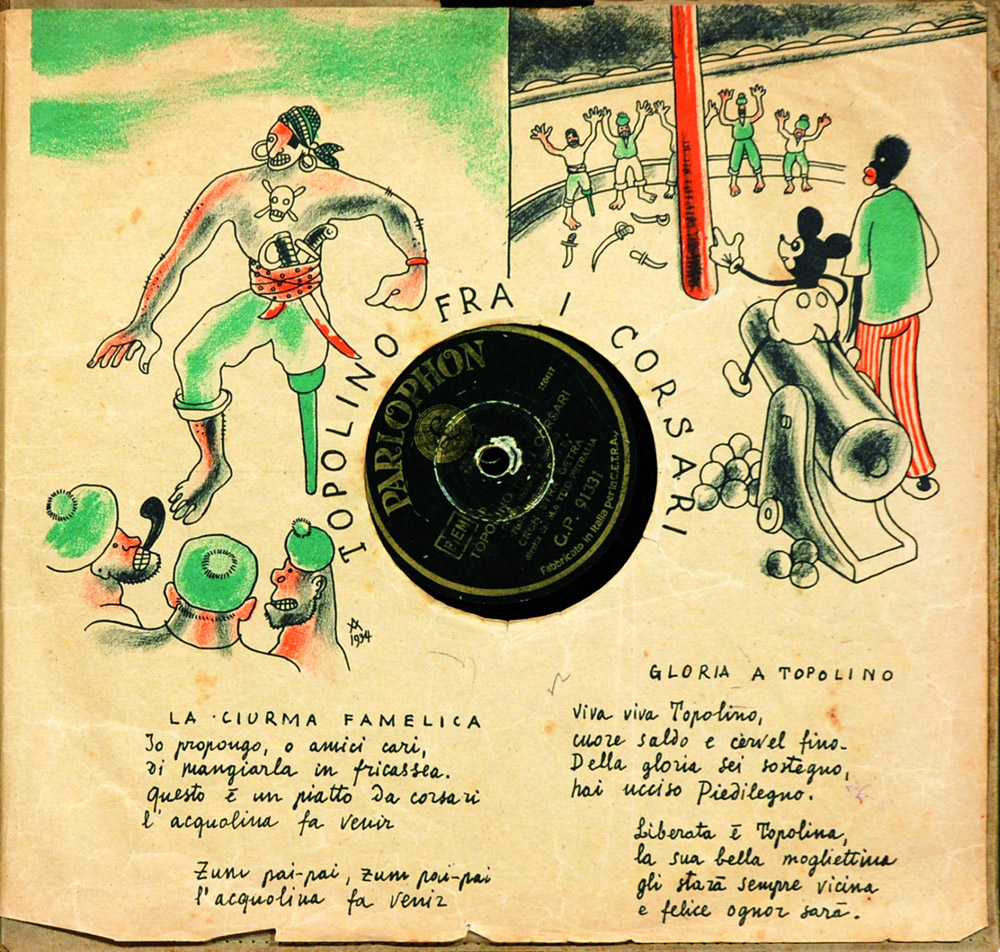 TOPOLINO FRA I CORSARI
PARLOPHON
150417
TOPOLINO
CORSARI
CETRA
G.P. 91331
Fabbricato in Italia per la C.E.T.R.A.
1934
LA CIURMA FAMELICA
Io propongo, o amici cari,
di mangiarla in fricassea.
Questo è un piatto da corsari
l'acquolina fa venir
Zum pai-pai, zum pai-pai
l'acquolina fa venir
GLORIA A TOPOLINO
Viva viva Topolino,
cuore saldo e cèrvel fino.
Della gloria sei sostegno,
hai ucciso Piedilegno.
Liberata è Topolina,
la sua bella mogliettina
gli starà sempre vicina
e felice ognor sarà.